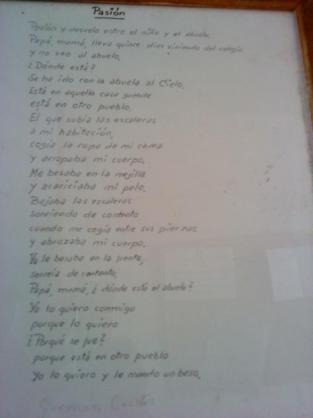 Pasión
Pasión y desvelo entre el niño y el abuelo.
Papá, mamá, llevo quince días viniendo del colegio
y no veo al abuelo,
¿Dónde está?
Se ha ido con la abuela al Cielo.
Está en aquella casa grande
está en otro pueblo.
El que subía las escaleras
a mi habitación,
cogía la ropa de mi cama
y arropaba mi cuerpo.
Me besaba en la mejilla
y acariciaba mi pelo.
Bajaba las escaleras
sonriendo de contento
cuando me cogía entre sus piernas
y abrazaba mi cuerpo.
Yo le besaba en la frente,
sonreía de contento,
Papá, mamá, ¿dónde está el abuelo?
Yo lo quiero conmigo
porque lo quiero
¿Porqué se fue?
porque está en otro pueblo
Yo lo quiero y le mando un beso.